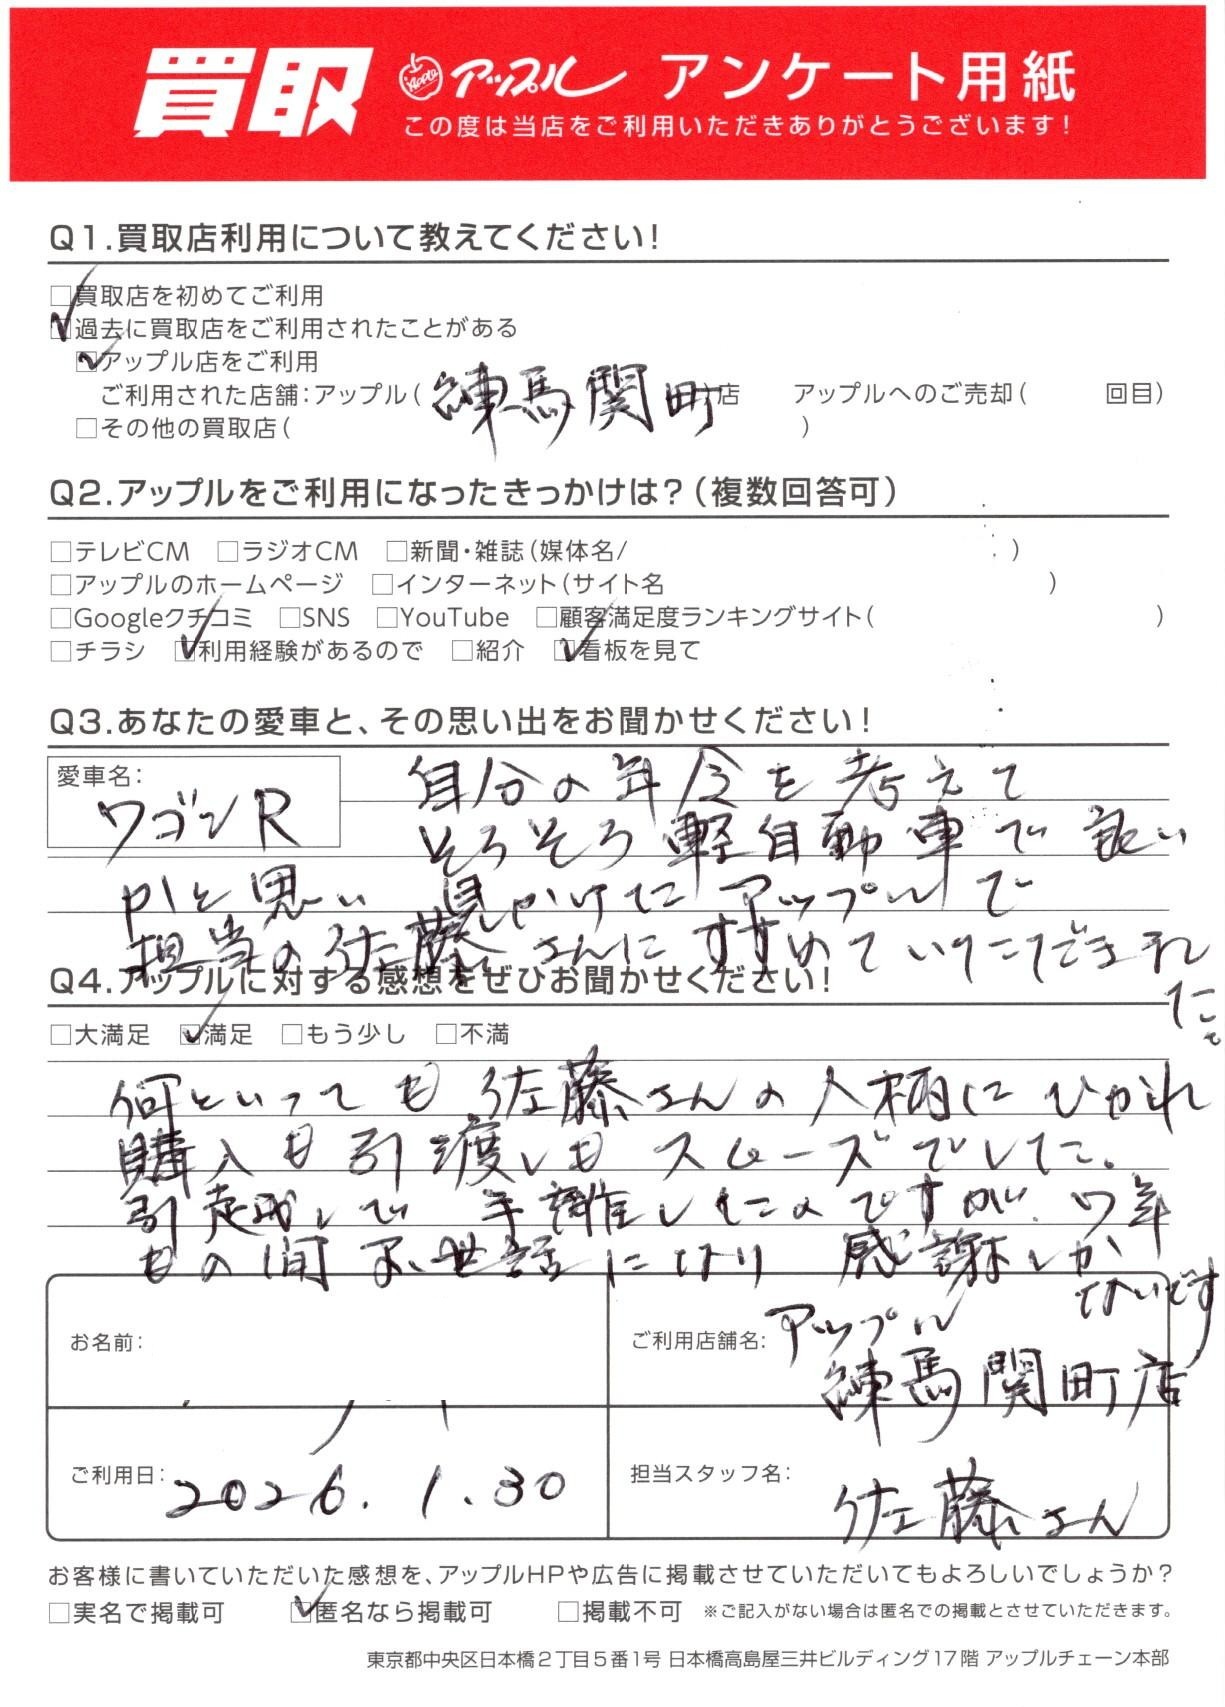 買取 Apple アップル アンケート用紙
この度は当店をご利用いただきありがとうございます!
Q1.買取店利用について教えてください!
□買取店を初めてご利用
☑過去に買取店をご利用されたことがある
☑アップル店をご利用
ご利用された店舗:アップル(練馬関町)店 アップルへのご売却( 回目)
□その他の買取店( )
Q2.アップルをご利用になったきっかけは?(複数回答可)
□テレビCM □ラジオCM □新聞・雑誌(媒体名/ )
□アップルのホームページ □インターネット(サイト名 )
□Googleクチコミ □SNS □YouTube □顧客満足度ランキングサイト( )
□チラシ ☑利用経験があるので □紹介 ☑看板を見て
Q3.あなたの愛車と、その思い出をお聞かせください!
愛車名:
ワゴンR
自分の年令を考えて
そろそろ軽自動車で良い
と思い 見かけたアップルで
担当の佐藤さんにすすめていただきました。
Q4.アップルに対する感想をぜひお聞かせください!
□大満足 ☑満足 □もう少し □不満
何といっても佐藤さんの人柄にひかれ
購入も引渡しもスムーズでした。
手離したのですが、
もの間お世話になり 感謝しかないです
お名前:
ご利用店舗名: アップル
練馬関町店
ご利用日: 2026.1.30
担当スタッフ名: 佐藤さん
お客様に書いていただいた感想を、アップルHPや広告に掲載させていただいてもよろしいでしょうか?
□実名で掲載可 ☑匿名なら掲載可 □掲載不可 ※ご記入がない場合は匿名での掲載とさせていただきます。
東京都中央区日本橋2丁目5番1号 日本橋高島屋三井ビルディング17階 アップルチェーン本部